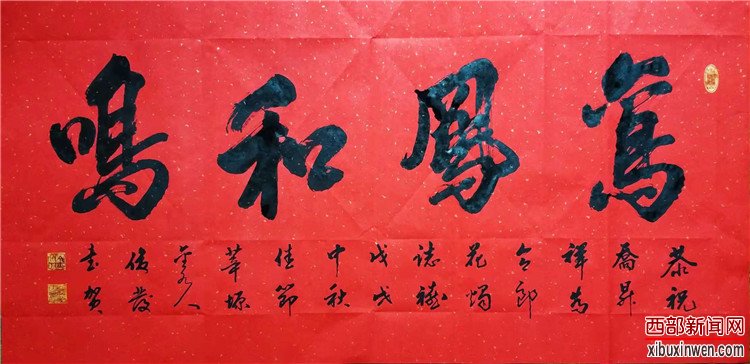 鸞鳳和鳴
恭祝
喬昇
祥為
令郎
花燭
誌禧
戊戌
中秋
佳節
華塬
人
俊發
書賀
西部新闻网
xibuxinwen.com